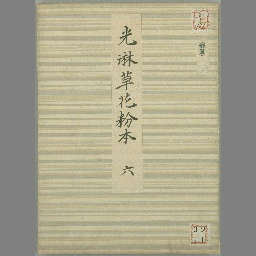 光琳草花粉本 六